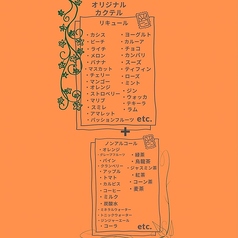 オリジナル
カクテル
リキュール
・カシス
・ピーチ
・ライチ
・メロン
・バナナ
・マスカット
・チェリー
・マンゴー
・オレンジ
・ストロベリー
・マリブ
・スミレ
・アマレット
・パッションフルーツ
・ヨーグルト
・カルーア
・チョコ
・カンパリ
・スーズ
・ティフィン
・ローズ
・ミント
・ジン
・ウォッカ
・テキーラ
・ラム
etc.
+
ノンアルコール
・オレンジ
・グレープフルーツ
・パイン
・クランベリー
・アップル
・トマト
・カルピス
・コーヒー
・ミルク
・炭酸水
・ミネラルウォーター
・トニックウォーター
・ジンジャーエール
・コーラ
・緑茶
・烏龍茶
・ジャスミン茶
・紅茶
・コーン茶
・麦茶
etc.